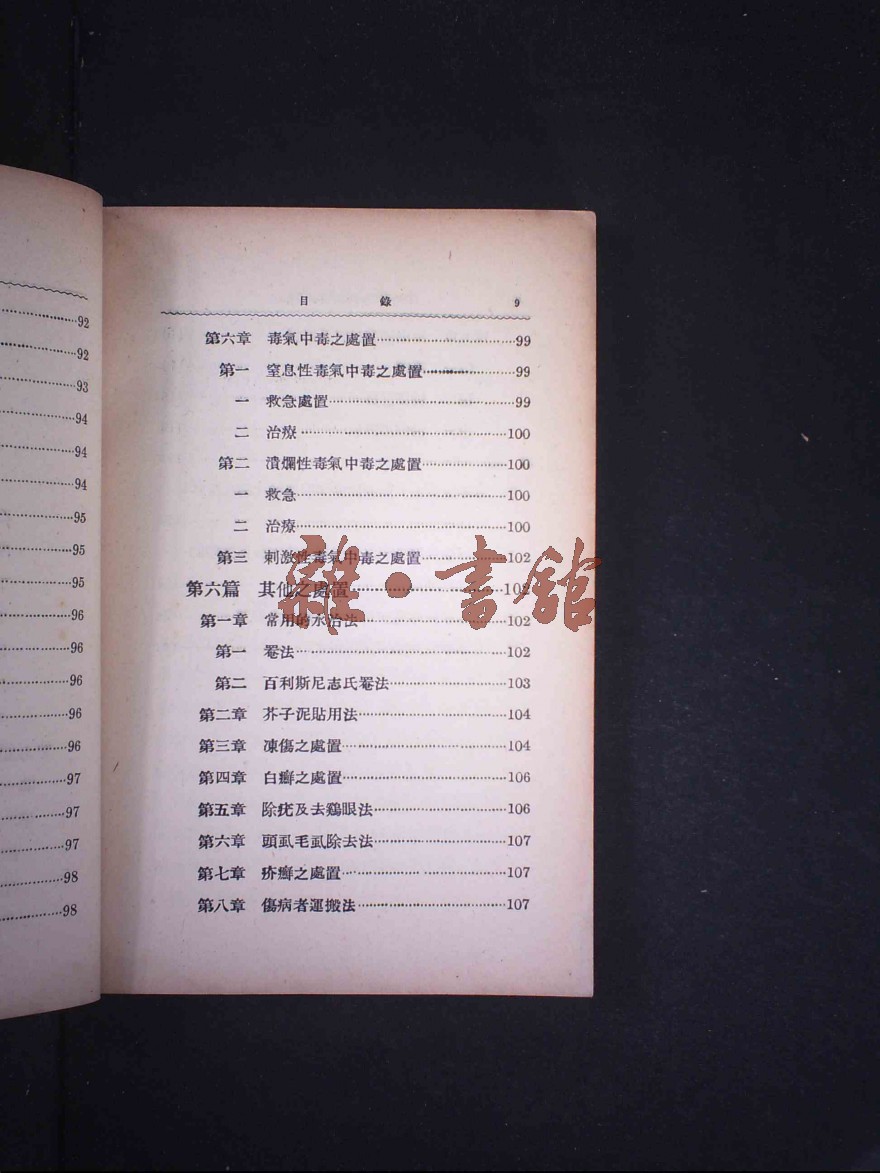 92
92
93
94
94
94
95
95
95
96
96
96
96
96
97
97
97
98
98
目錄 9
第六章 毒氣中毒之處置 99
第一 窒息性毒氣中毒之處置 99
一 救急處置 99
二 治療 100
第二 潰爛性毒氣中毒之處置 100
一 救急 100
二 治療 100
第三 刺激性毒氣中毒之處置 102
第六篇 其他之處置 102
第一章 常用的水治法 102
第一 罨法 102
第二 百利斯尼志氏罨法 103
第二章 芥子泥貼用法 104
第三章 凍傷之處置 104
第四章 白癬之處置 106
第五章 除疣及去鷄眼法 106
第六章 頭虱毛虱除去法 107
第七章 疥癬之處置 107
第八章 傷病者運搬法 107
雜·書館